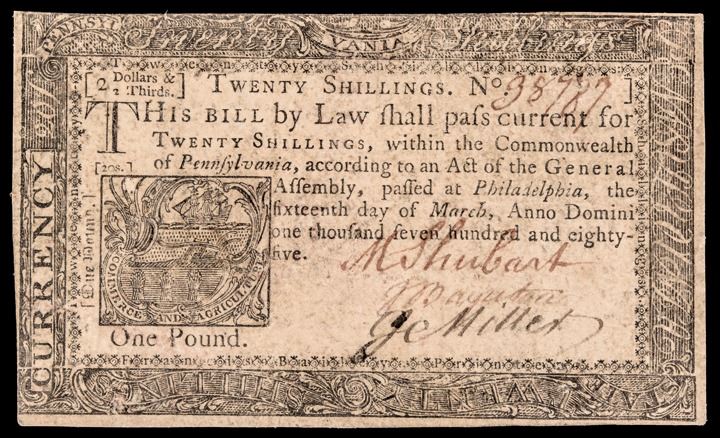 PENNSYL VANIA
Twenty Shillings.
[2 2/3 Dollars & Thirds.] TWENTY SHILLINGS. No 38787]
THIS BILL by Law ſhall paſs current for
TWENTY SHILLINGS, within the Commonwealth
of Pennſylvania, according to an Act of the General
[20s.]
Aſſembly, paſſed at Philadelphia, the
ſixteenth day of March, Anno Domini
one thouſand ſeven hundred and eighty-
five.
COMMERCE AND AGRICULTURE
[One Pound.]
M Shubart
J Baynton
Jc Miller
One Pound.
Francis Bailey Printer
CURRENCY
20s
TWENTY SHILLING
STATE